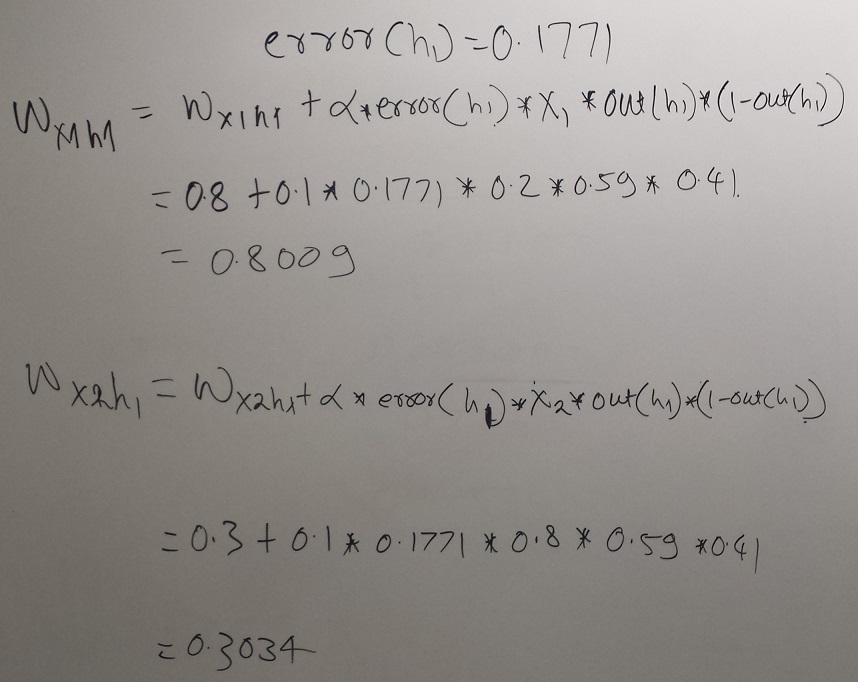 error(h₁)=0.1771
Wx1h1 = Wx1h1 + α*error(h₁)*X₁*out(h₁)*(1-out(h₁))
=0.8+0.1*0.1771*0.2*0.59*0.41
=0.8009
Wx2h₁=Wx2h1+α*error(h₁)*X₂*out(h₁)*(1-out(h₁))
=0.3+0.1*0.1771*0.8*0.59*0.41
=0.3034